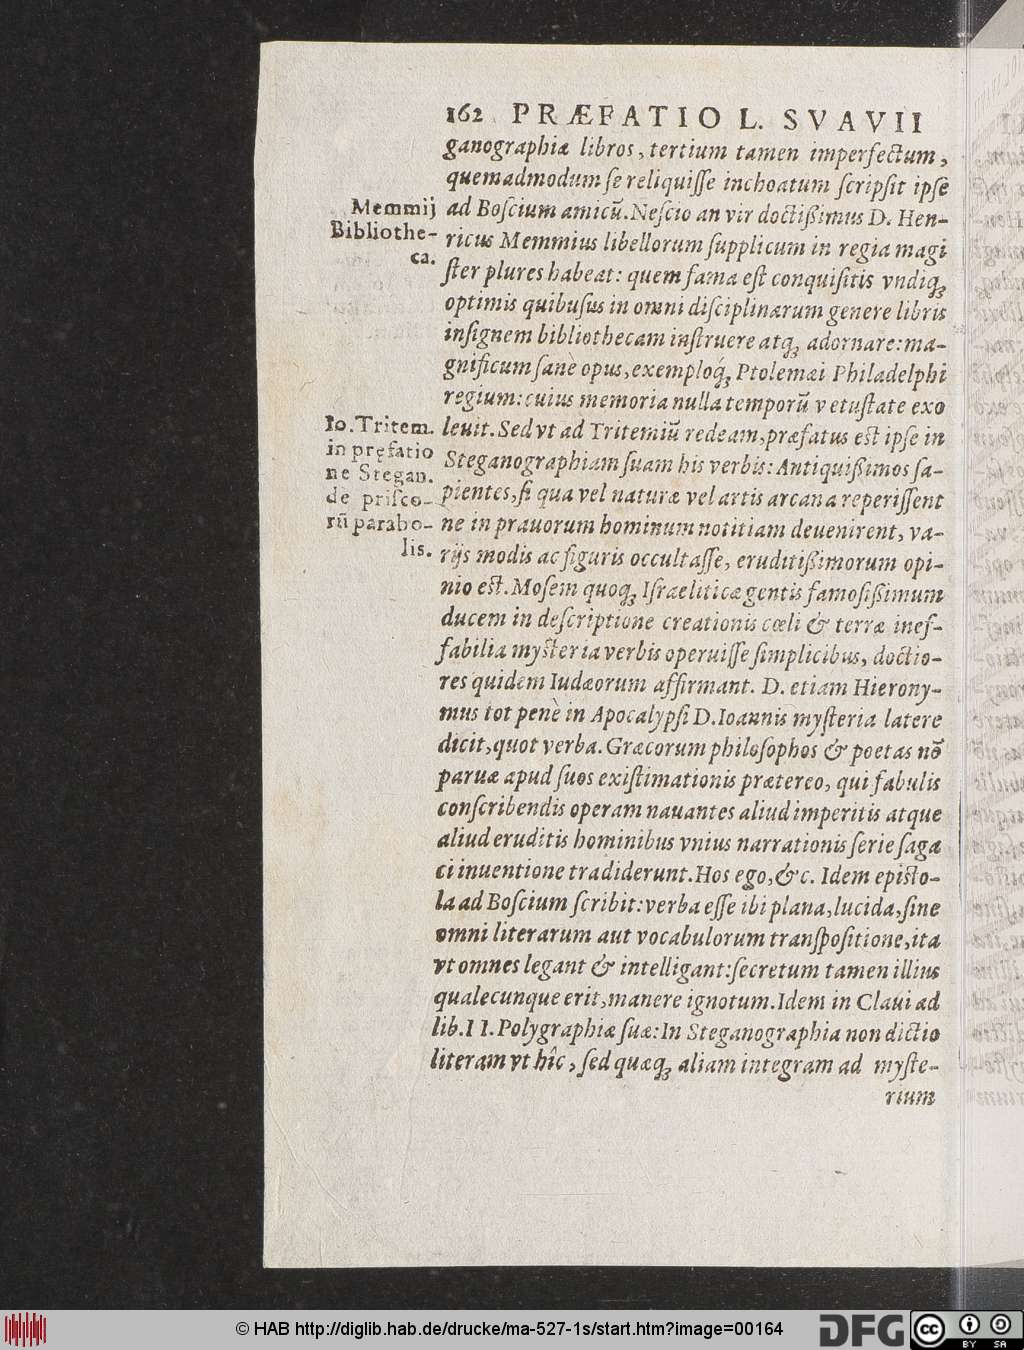 162 PRÆFATIO L. SVAVII
ganographiæ libros, tertium tamen imperfectum,
quemadmodum se reliquisse inchoatum scripsit ipse
Memmij
ad Boscium amicũ. Nescio an vir doctißimus D. Hen-
Bibliothe-
ricus Memmius libellorum supplicum in regia magi
ca.
ster plures habeat: quem fama est conquisitis vndiq;
optimis quibusus in omni disciplinarum genere libris
insignem bibliothecam instruere atq; adornare: ma-
gnificum sanè opus, exemploq́; Ptolemæi Philadelphi
regium: cuius memoria nulla temporũ vetustate exo
Io. Tritem.
leuit. Sed vt ad Tritemiũ redeam, præfatus est ipse in
in pręfatio
Steganographiam suam his verbis: Antiquißimos sa-
ne Stegan.
pientes, si qua vel naturæ vel artis arcana reperissent
de prisco-
ne in prauorum hominum notitiam deuenirent, va-
rũ parabo-
lis.
rijs modis ac figuris occultasse, eruditißimorum opi-
nio est. Mosem quoq; Israeliticæ gentis famosißimum
ducem in descriptione creationis cœli & terræ inef-
fabilia mysteria verbis operuisse simplicibus, doctio-
res quidem Iudæorum affirmant. D. etiam Hierony-
mus tot penè in Apocalypsi D. Ioannis mysteria latere
dicit, quot verba. Græcorum philosophos & poetas nõ
paruæ apud suos existimationis prætereo, qui fabulis
conscribendis operam nauantes aliud imperitis atque
aliud eruditis hominibus vnius narrationis serie saga
ci inuentione tradiderunt. Hos ego, &c. Idem episto-
la ad Boscium scribit: verba esse ibi plana, lucida, sine
omni literarum aut vocabulorum transpositione, ita
vt omnes legant & intelligant: secretum tamen illius
qualecunque erit, manere ignotum. Idem in Claui ad
lib. II. Polygraphiæ suæ: In Steganographia non dictio
literam vt hîc, sed quæq; aliam integram ad myste-
rium
© HAB http://diglib.hab.de/drucke/ma-527-1s/start.htm?image=00164
DFG
cc BY SA